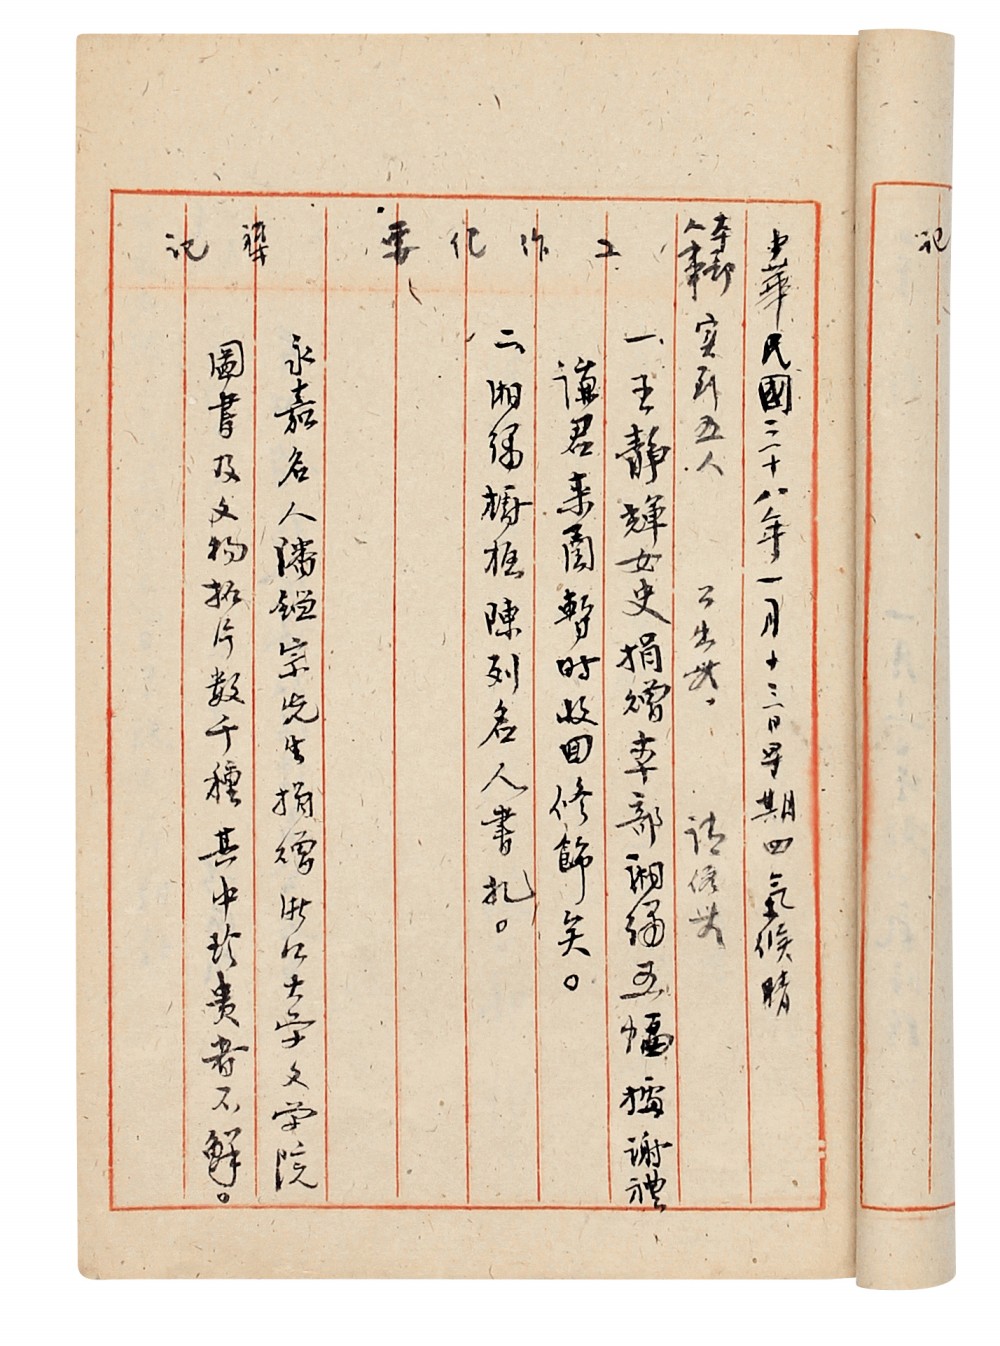 記
中華民國三十八年一月十三日星期四氣候晴
本部人事 实到五人 公出無 請假無
工作紀要
一、王靜輝女史捐赠本部湘绣五幅 據谢禮
謙君来函暫时收回修飾矣。
二、湘绣橱柜陳列名人書札。
雜記
永嘉名人潘鎰宗先生捐赠浙江大学文学院
圖書及文物拓片数千種其中珍贵者不鮮。